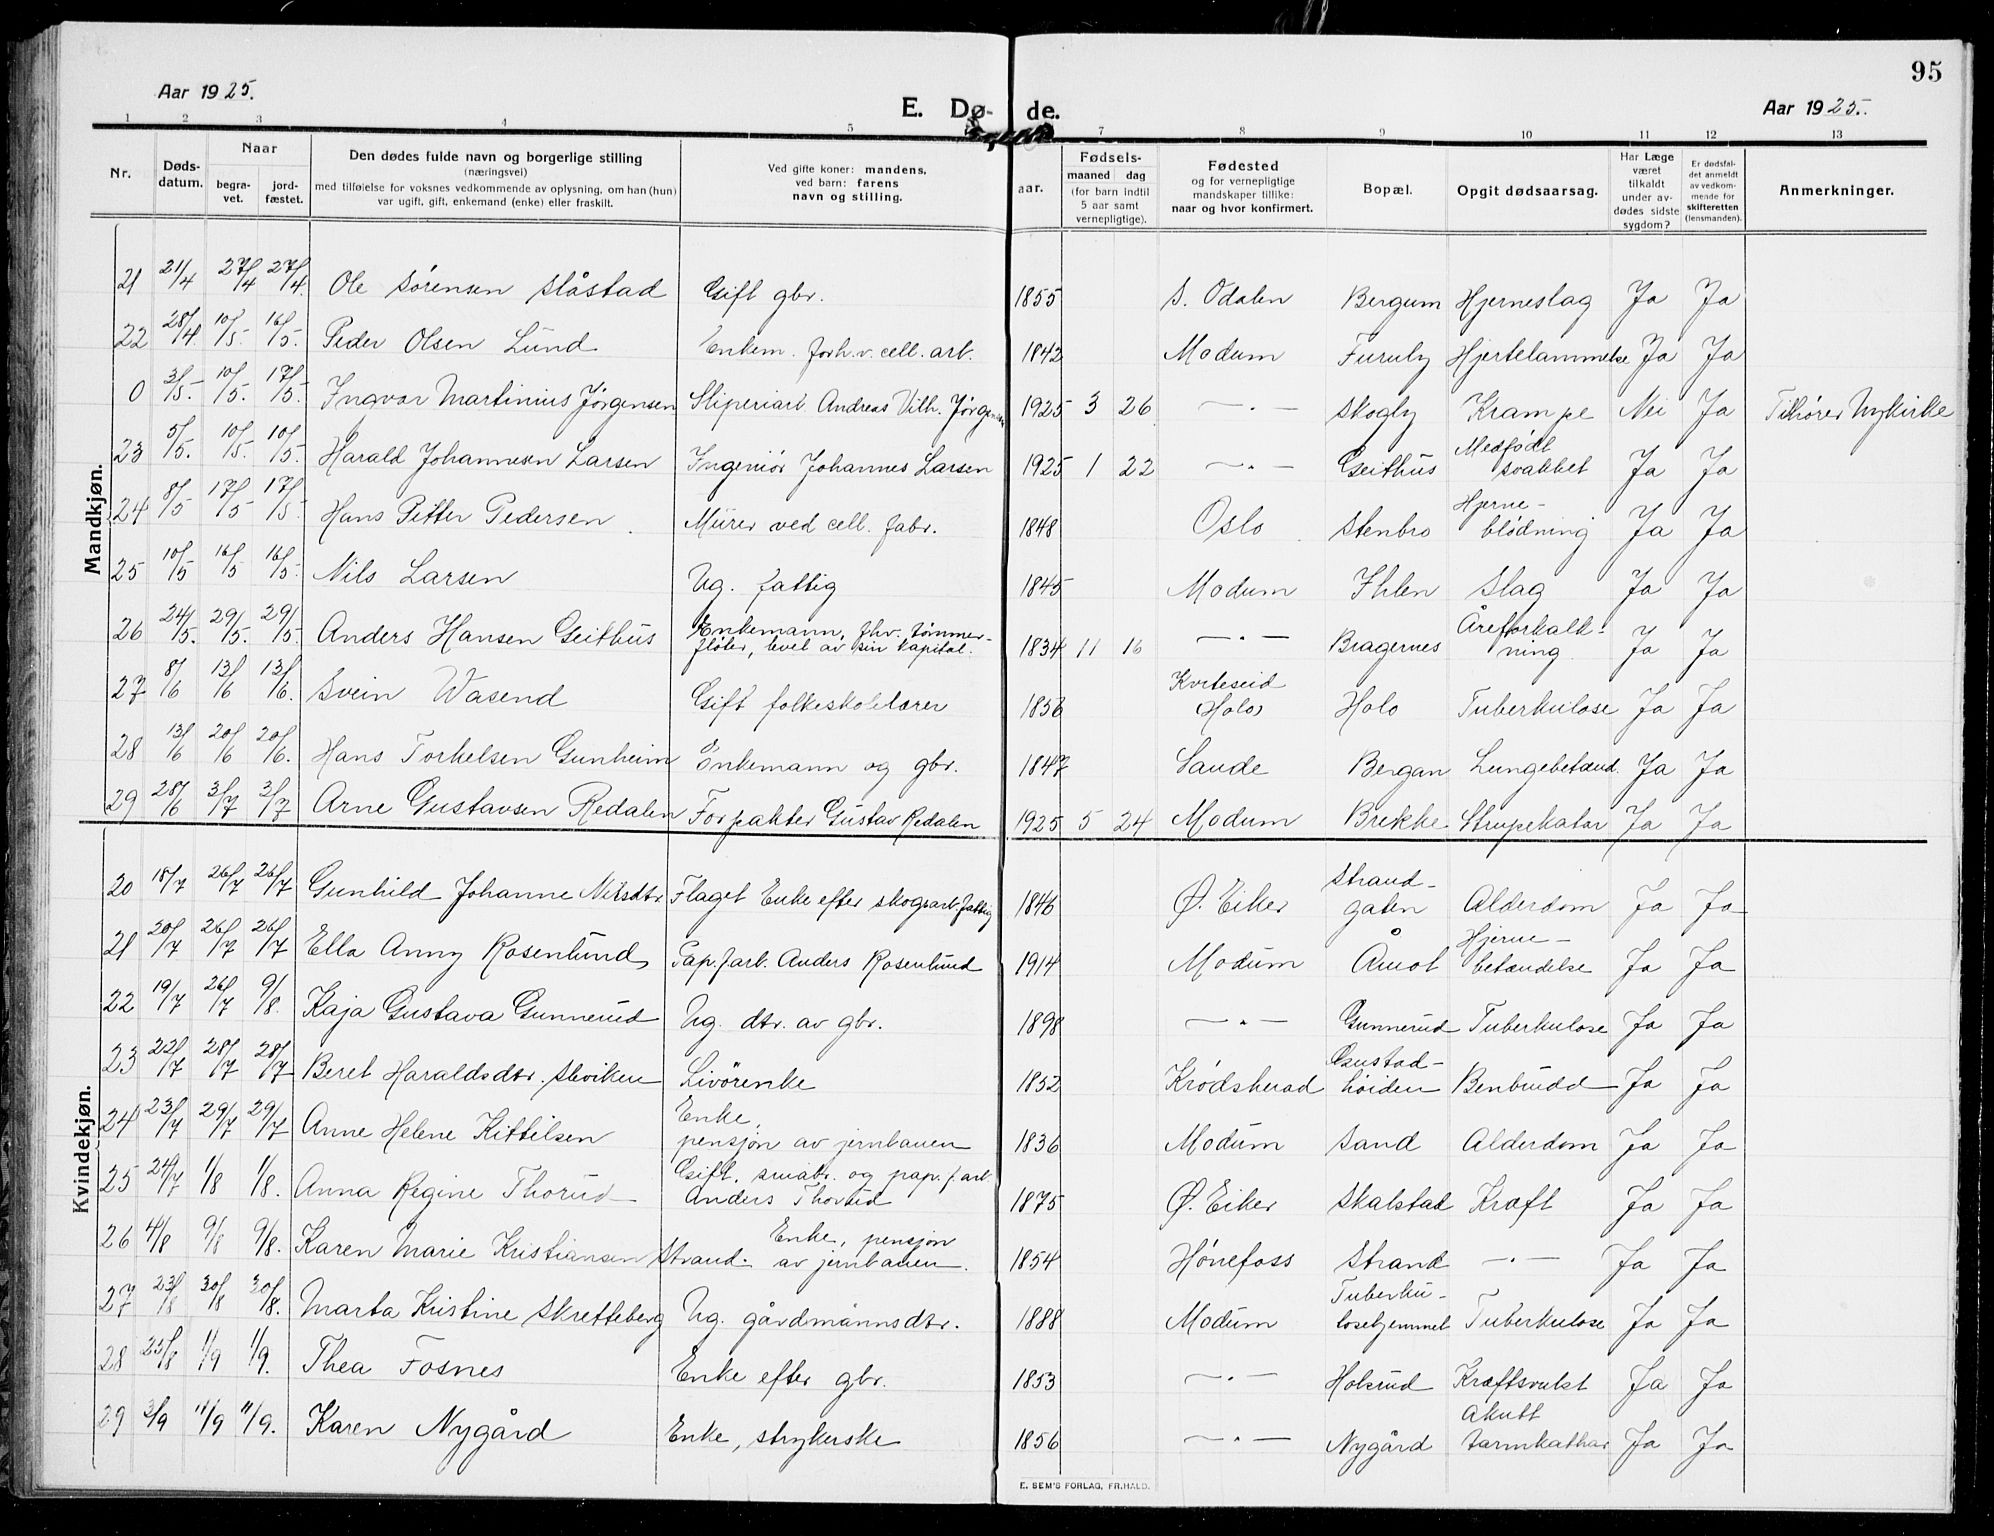 95
Aar 1925. E. Dø- de. Aar 1925.
1 2 3 4 5 7 8 9 10 11 12 13
Nr.
Døds-
datum.
Naar
begra-
vet.
jord-
fæstet.
Den dødes fulde navn og borgerlige stilling
(næringsvei)
med tilføielse for voksnes vedkommende av oplysning, om han (hun)
var ugift, gift, enkemand (enke) eller fraskilt.
Ved gifte koner: mandens,
ved barn: farens
navn og stilling.
aar.
Fødsels-
maaned dag
(for barn indtil
5 aar samt
vernepligtige).
Fødested
og for vernepligtige
mandskaper tillike:
naar og hvor konfirmert.
Bopæl.
Opgit dødsaarsag.
Har Læge
været
tilkaldt
under av-
dødes sidste
sygdom?
Er dødsfal-
det anmeldt
av vedkom-
mende for
skifteretten
(lensmanden).
Anmerkninger.
Mandkjøn.
21 21/4 27/4 27/4. Ole Sørensen Slåstad Gift gbr. 1855 S. Odalen Bergum Hjerneslag Ja Ja
22 28/4 10/5. 16/5. Peder Olsen Lund Enkem. forh.v. cell. arb. 1842 Modum Furuly Hjertelammelse Ja Ja
0 3/5. 10/5. 17/5. Ingvar Martinius Jørgensen Sliperiarb. Andreas Vilh. Jørgensen 1925 3 26 —"— Skogly Krampe Nei Ja Tilhører Nykirke
23 5/5. 10/5. 10/5. Harald Johannesen Larsen Ingeniør Johannes Larsen 1925 1 22 —"— Geithus Medfødt
svakhet Ja Ja
24 8/5 17/5 17/5. Hans Petter Pedersen Murer ved cell. fabr. 1848 Oslo Stenbro Hjerne-
blødning Ja Ja
25 10/5 16/5 16/5. Nils Larsen Ug. fattig 1845 Modum Ihlen Slag Ja Ja
26 24/5. 29/5. 29/5. Anders Hansen Geithus Enkemann, fhv. tømmer-
fløter, levet av sin kapital. 1834 11 16 —"— Bragernes Åreforkalk-
ning Ja Ja
27 8/6 13/6 13/6. Svein Wasend Gift folkeskolelærer 1856 Kviteseid
(Holo) Holo Tuberkulose Ja Ja
28 13/6 20/6 20/6. Hans Torkelsen Gunheim Enkemann og gbr. 1847 Saude Bergan Lungebetænd. Ja Ja
29 28/6 3/7 3/7 Arne Gustavsen Redalen Forpakter Gustav Redalen 1925 5 24 Modum Brekke Strupekatar Ja Ja
Kvindekjøn.
20 18/7 26/7 26/7 Gunhild Johanne Nilsdtr Flaget Enke efter skogsarb. fattig 1846 Ø. Eiker Strand-
gaten Alderdom Ja Ja
21 20/7 26/7 26/7 Ella Anny Rosenlund Pap.f.arb. Anders Rosenlund 1914 Modum Åmot Hjerne-
betændelse Ja Ja
22 19/7 26/7 9/8. Kaja Gustava Gunnerud Ug. dtr. av gbr. 1898 —"— Gunnerud Tuberkulose Ja Ja
23 22/7 28/7 28/7 Beret Haraldsdtr. Sleviken Livörenke 1852 Krødsherad Gustad-
høiden Benbrudd Ja Ja
24 23/7 29/7 29/7 Anne Helene Kittilsen Enke,
pensjon av jernbanen 1836 Modum Sand Alderdom Ja Ja
25 24/7 1/8 1/8. Anna Regine Thorud Gift. småbr. og pap.f.arb.
Anders Thorud 1875 Ø. Eiker Skalstad Kræft Ja Ja
26 4/8 9/8 9/8. Karen Marie Kristiansen Strand. Enke, pensjon
av jernbanen. 1854 Hønefoss Strand —"— Ja Ja
27 23/8 30/8 30/8. Marta Kristine Skretteberg Ug. gårdmannsdtr. 1888 Modum Tuberku-
losehjemmet Tuberkulose Ja Ja
28 25/8 1/9 1/9. Thea Fosnes Enke efter gbr. 1853 —"— Holsrud Kræftsvulst Ja Ja
29 3/9 11/9 11/9. Karen Nygård Enke, strykerske 1856 —"— Nygård Akutt
tarmkathar Ja Ja
E. SEM'S FORLAG, FR.HALD.